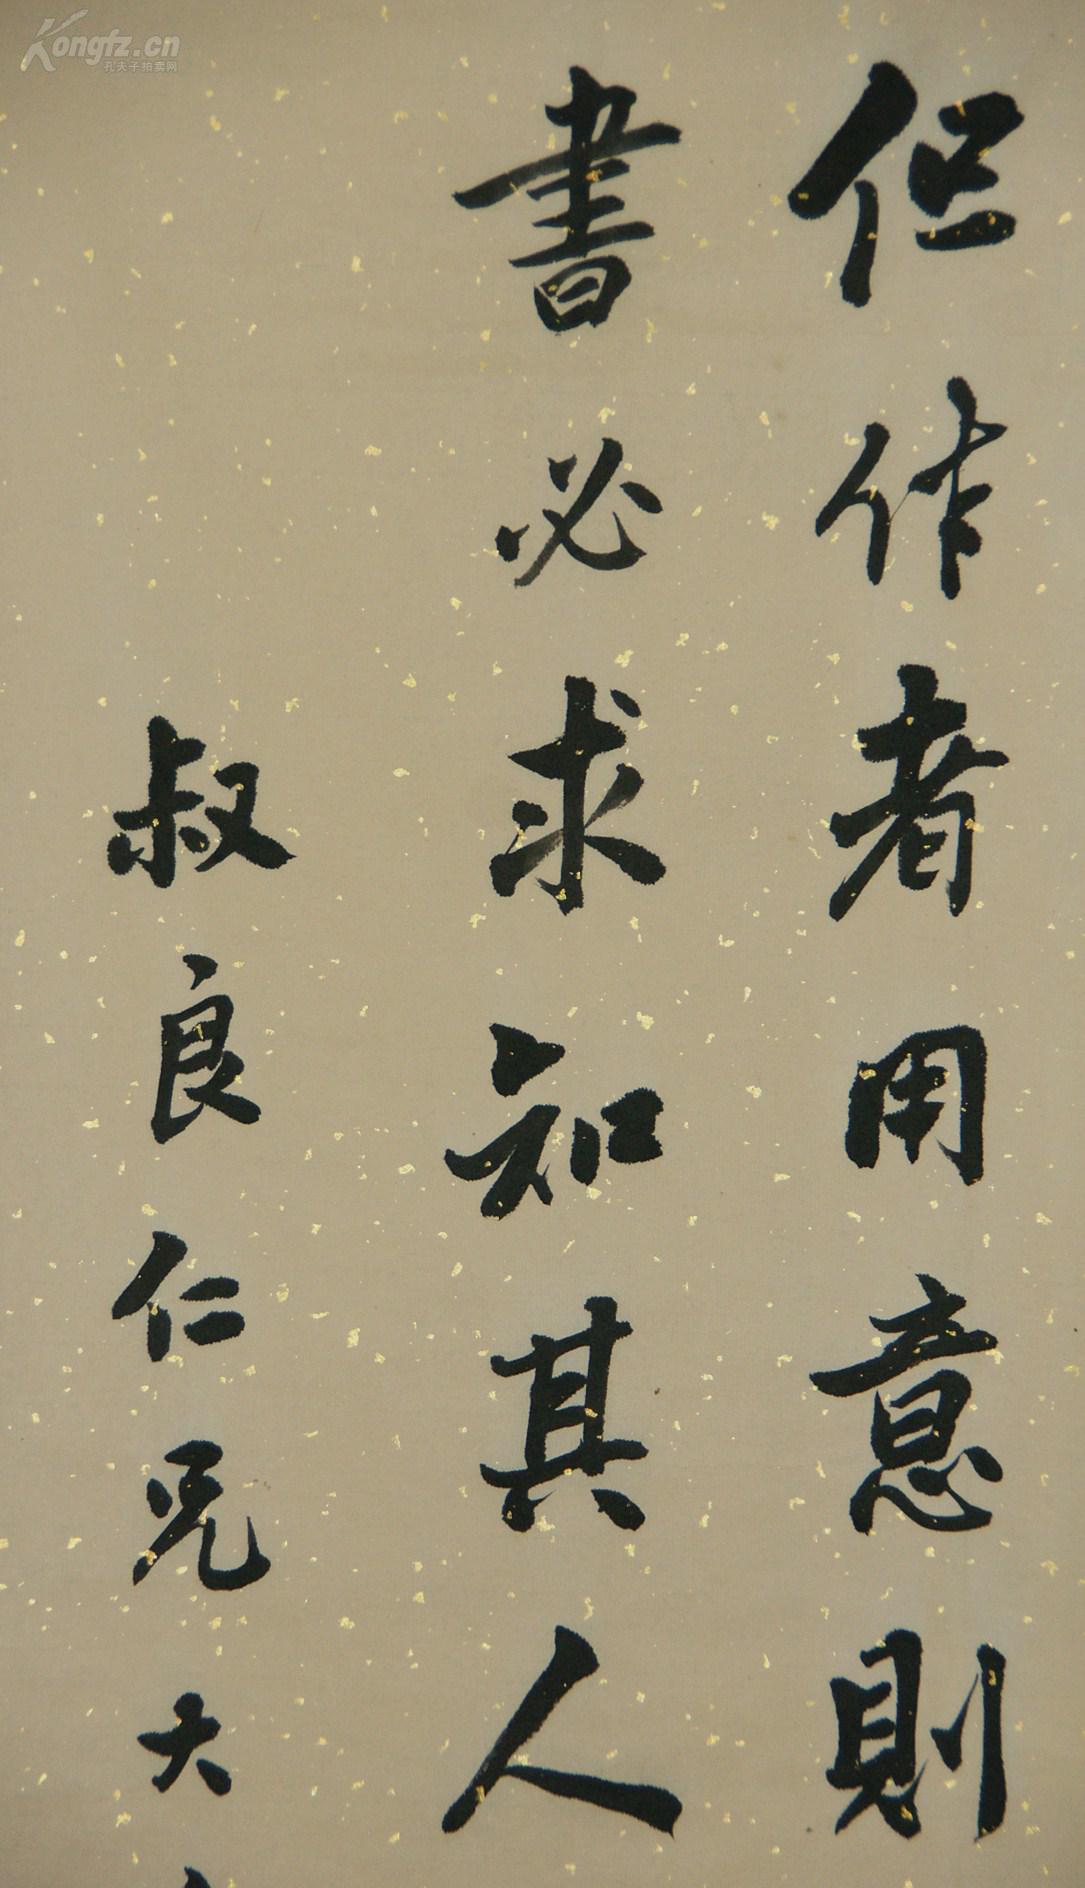 但作者用意則
書必求知其人
叔良仁兄大
Kongfz.cn
孔夫子拍卖网